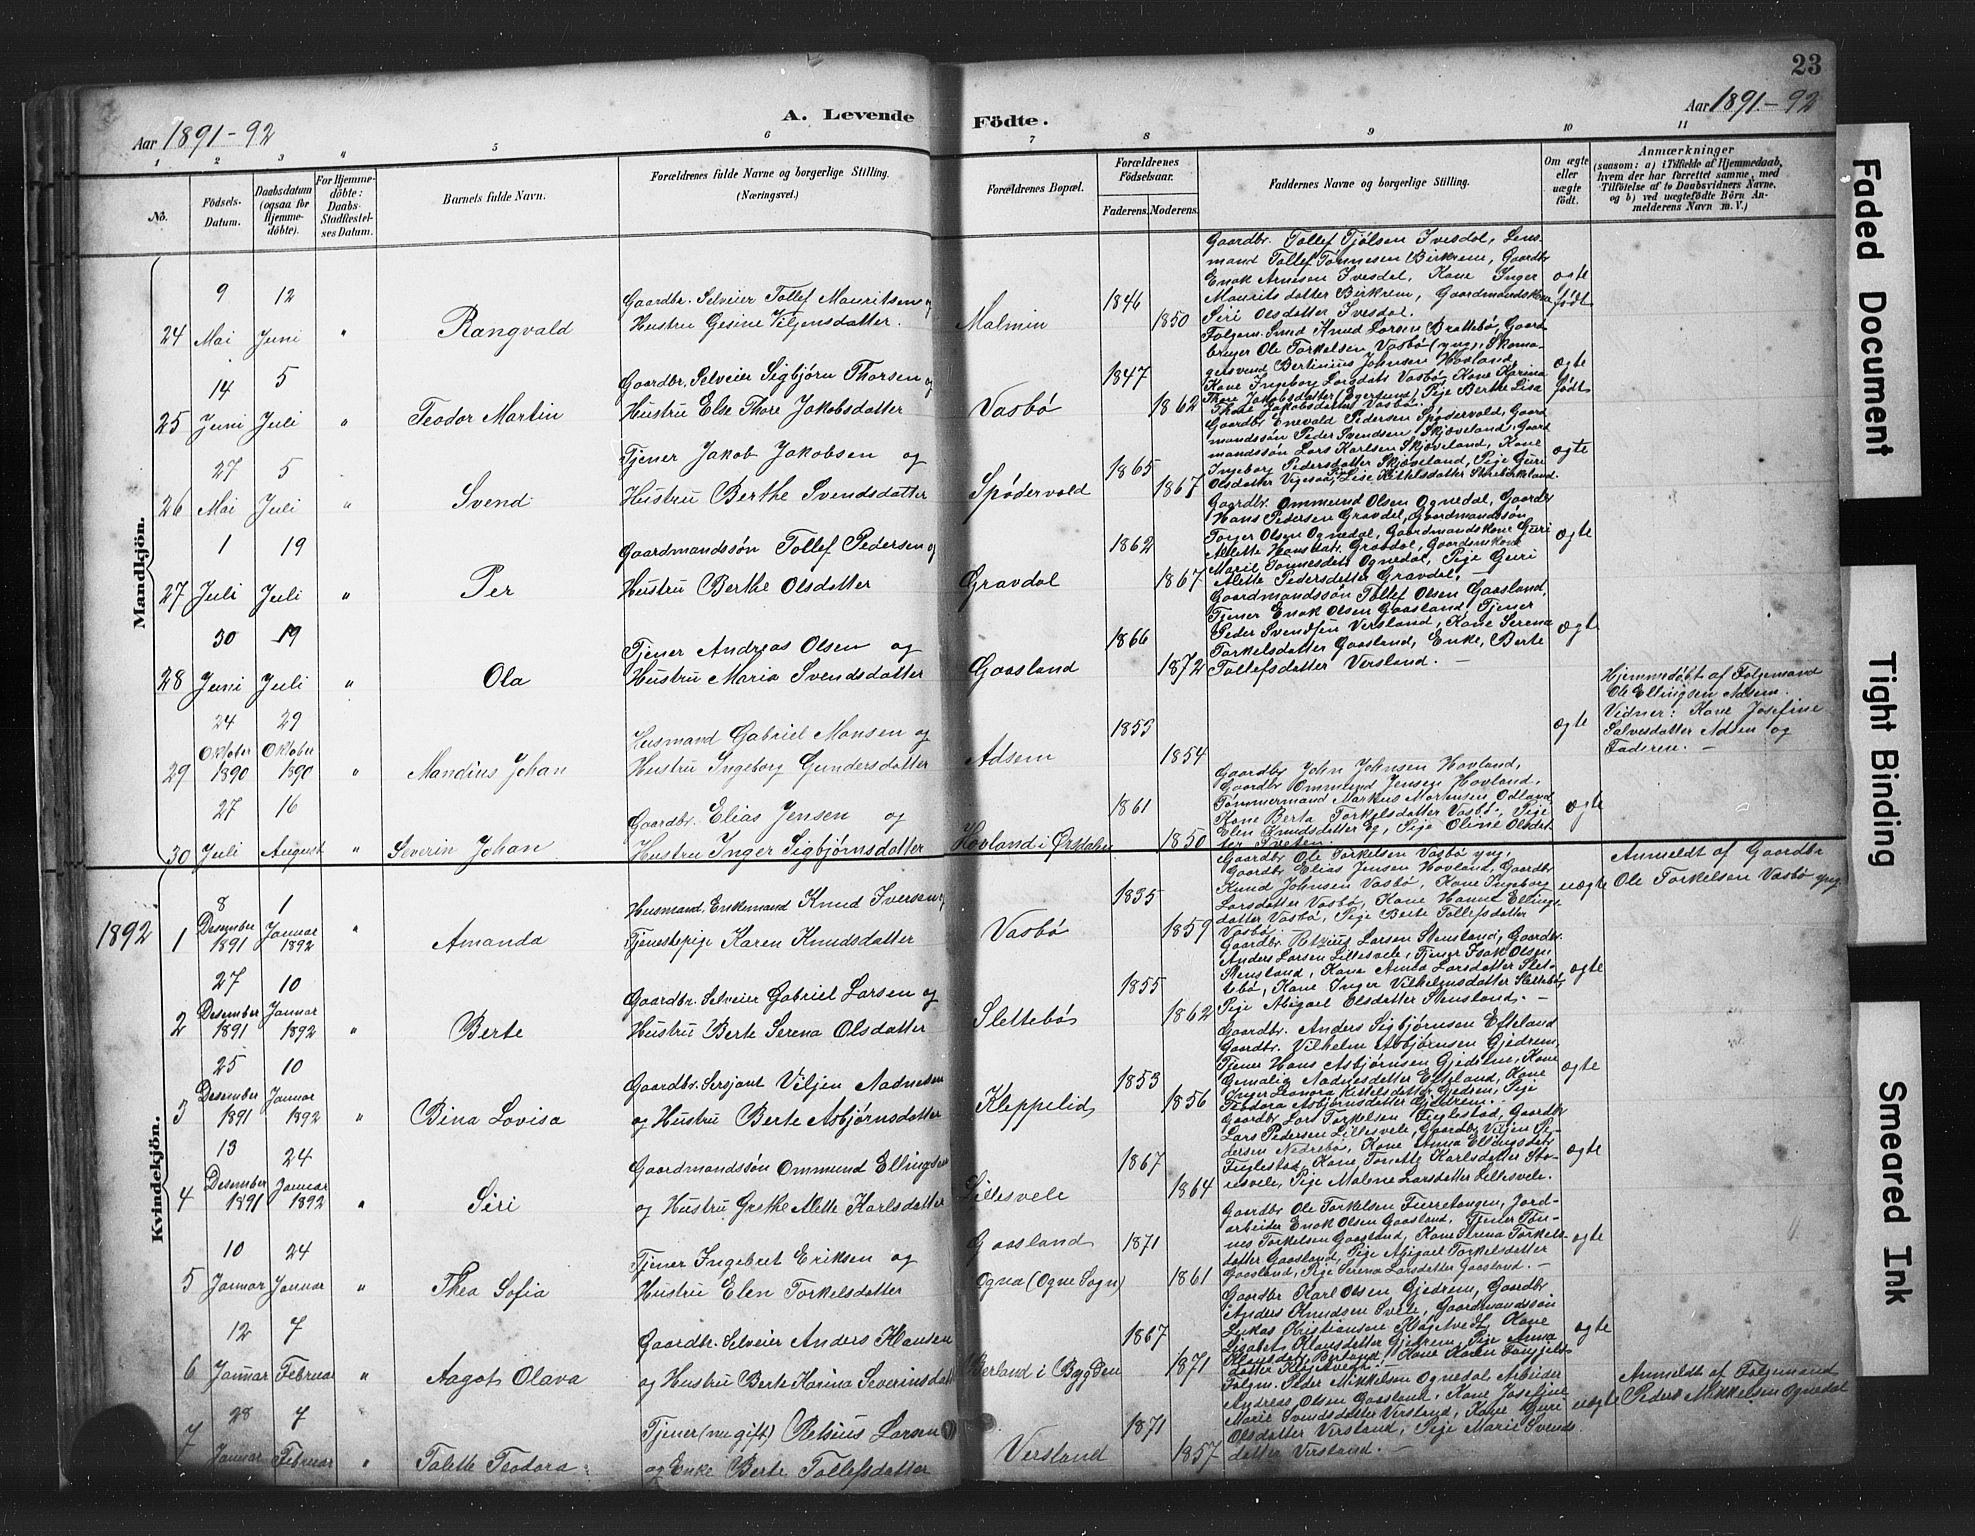 23
Aar 1891-92
A. Levende Födte.
Aar 1891-92
1 2 3 " 5 6 7 8 9 10 11
No.
Födsels-
Datum.
Daabsdatum
(ogsaa for
Hjemme-
döbte).
For Hjemme-
döbte:
Daabs-
Stadfæstel-
ses Datum.
Barnets fulde Navn.
Forældrenes fulde Navne og borgerlige Stilling.
(Næringsvei.)
Forældrenes Bopæl.
Forældrenes
Födselsaar.
Faderens. Moderens.
Faddernes Navne og borgerlige Stilling.
Om ægte
eller
uægte
födt.
Anmærkninger
(saasom: a) i Tilfælde af Hjemmedaab,
hvem der har forrettet samme, med
Tilföielse af to Daabsvidners Navne,
og b) ved uægtefödte Börn An-
melderens Navn m. V.)
Mandkjön.
24
9 Mai
12 Juni
"
Rangvald
Gaardbr. Selveier Tollef Mauritsen og
Hustru Gesine Viljensdatter.
Malmin
1846
1850
Gaardbr. Tollef Tjølsen Ivesdal, Lens-
mand Tollef Tønnesen Birkrem, Gaardbr
Enok Arnesen Ivesdal, Kone Inger
Maurits datter Birkrem, Gaardmandskone
Siri Olsdatter Ivesdal.
ægte
født
25
14 Juni
5 Juli
"
Teodor Martin
Gaardbr. Selveier Sigbjørn Thorsen og
Hustru Else Thore Jakobsdatter
Vasbø
1847
1862
Folgem. Smed Knud Larsen Brattebø, Gaard-
bruger Ole Torkelsen Vasbø (yng), Skoma-
gersvend Bertinius Johnsen Hovland,
Kone Ingeborg Larsdatr Vasbø, Kone Karina
Thore Jakobsdatter (Egersund), Pige Berthe Lisa
Thore Jakobsdatter Vasbø.
ægte
født
26
27 Mai
5 Juli
"
Svend
Tjener Jakob Jakobsen og
Hustru Berthe Svendsdatter
Spødervold
1865
1867
Gaardbr. Enevald Pedersen Spødervold, Gaard
mandssøn Peder Svendsen Skjæveland, Gaard
mandssøn Lars Karlsen Skjæveland, Kone
Ingeborg Pedersdatter Skjæveland, Pige Guri
Olsdatter Vigesaa, Lise Kethelsdatter Storebirkeland.
ægte
27
1 Juli
19 Juli
"
Per
Gaardmandssøn Tollef Pedersen og
Hustru Berthe Olsdatter
Gravdal
1862
1867
Gaardbr. Ommund Olsen Ognedal, Gaardbr
Hans Pedersen Gravdal, Gaardmandssøn
Torger Olsen Ognedal, Gaardmandskone Guri
Alette Hansdatr. Gravdal, Gaardmskone
Maril Tønnesdatr Ognedal, Pige Guri
Alette Pedersdatter Gravdal.
ægte
28
30 Juni
19 Juli
"
Ola
Tjener Andreas Olsen og
Hustru Maria Svendsdatter
Gaasland
1866
1872
Gaardmandssøn Tollef Olsen Gaasland,
Tjener Enok Olsen Gaasland, Tjener
Peder Svendsen Versland, Kone Serena
Torkelsdatter Gaasland, Enke, Berte
Tollefsdatter Versland. —
ægte
29
24 Oktober 1890
29 Oktober 1890
"
Mandius Johan
Husmand Gabriel Monsen og
Hustru Ingeborg Gundersdatter
Adsem
1859
1854
ægte
Hjemmedøbt af Folgemand
Ole Ellingsen Adsem.
Vidner: Kone Josefine
Salvesdatter Adsen og
Faderen. —
30
27 Juli
16 August
"
Severin Johan
Gaardbr. Elias Jensen og
Hustru Inger Sigbjørnsdatter
Hovland i Ørsdalen
1861
1850
Gaardbr John Johnsen Hovland,
Gaardbr Ommund Jensen Hovland,
Tømmermand Markus Mortensen Odland,
Kone Berta Torkelsdatter Vasbø, Pige
Elen Knudsdatter Eg, Pige Oline Olsdat-
ter Sveten.
ægte
1892
Kvindekjön.
1
8 Desember 1891
1 Januar 1892
"
Amanda
Husmand, Enkemand Knud Iversen og
Tjenestepige Karen Knudsdatter
Vasbø
1835
1859
Gaardbr Ole Torkelsen Vasbø yng,
Gaardbr Elias Jensen Hovland, Gaardbr
Knud Johnsen Vasbø, Kone Ingeborg
Larsdatter Vasbø, Kone Hanne Ellings
datter Vasbø, Pige Berte Tollefsdatter
Vasbø. —
uægte
Anmeldt af Gaardbr
Ole Torkelsen Vasbø yng.
2
27 Desember 1891
10 Januar 1892
"
Berte
Gaardbr. Selveier Gabriel Larsen og
Hustru Berte Serena Olsdatter
Slettebø
1855
1862
Gaardbr. Retzius Larsen Stensland, Gaardbr.
Anders Larsen Lillesvele, Tjener Isak Olsen
Stensland, Kone Anna Larsdatter Slet-
tebø, Kone Inger Vilhelmsdatter Sletebø,
Pige Abigael Olsdatter Stensland. —
ægte
3
25 Desember 1891
10 Januar 1892
"
Bina Lovisa
Gaardbr. Sersjant Viljen Aadnesen
og Hustru Berte Asbjørnsdatter
Kleppelid
1853
1856
Gaardbr. Anders Sigbjørnsen Efteland
Gaardbr. Vilhelm Asbjørnsen Gjedrem,
Tjener Hans Asbjørnsen Gjedrem, Kone
Gemalia Aadnesdatter Efteland, Kone
Inger Leonora Kittelsdatter Gjedrem, Pige
Teodora Asbjørnsdatter Gjedrem. —
ægte
4
13 Desember 1891
24 Januar 1892
"
Siri
Gaardmandssøn Ommund Ellingsen
og Hustru Grethe Alette Karlsdatter
Lillesvele
1867
1864
Gaardbr. Lars Torkelsen Fuglestad, Gaardbr
Lars Pedersen Lillesvele, Gaardbr Viljen Pe-
dersen Nedrebø, Kone Anna Ellingsdatr
Fuglestad, Kone Tonette Karlsdatter Sto-
resvele, Pige Malene Larsdatter Lillesvele.
ægte
5
10 Januar
24 Januar
"
Thea Sofia
Tjener Ingebret Eriksen og
Hustru Elen Torkelsdatter
Gaasland
Ogna (Ogne Sogn)
1871
1861
Gaardbr Ole Torkelsen Fuerretangen, Jord-
arbeider Enok Olsen Gaasland, Tjener Tøn-
nes Torkelsen Gaasland, Kone Serena Torkels-
datter Gaasland, Pige Abigael Torkelsdatter
Gaasland, Pige Serena Larsdatter Gaasland. —
ægte
6
12 Januar
7 Februar
"
Aagot Olava
Gaardbr. Selveier Anders Hansen
og Hustru Berte Karina Severinsdatr
Berland i Bygden
1867
1871
Gaardbr Karl Olsen Gjedrem, Gaardbr
Anders Knudsen Svele, Gaardmandssøn
Lukas Kristiansen Kløgetvedt, Kone
Lisabet Klausdatter Gjedrem, Pige Anna
ægte
7
28 Januar
7 Februar
"
Talette Teodora
Tjener (nu gift) Retsius Larsen
og Enke Berte Tollefsdatter
Versland
1871
1857
Folgm. Peder Mikkelsen Ognedal Arbeider
Andreas Olsen Gaasland, Kone Josefine
Marie Svendsdatter Verslynd, Kone Guri
Olsdatter Versland, Pige Marie Svends
datter Versland. —
uægte
Anmeldt af Folgemand
Peder Mikkelsen Ognedal
Faded Document
Tight Binding
Smeared Ink